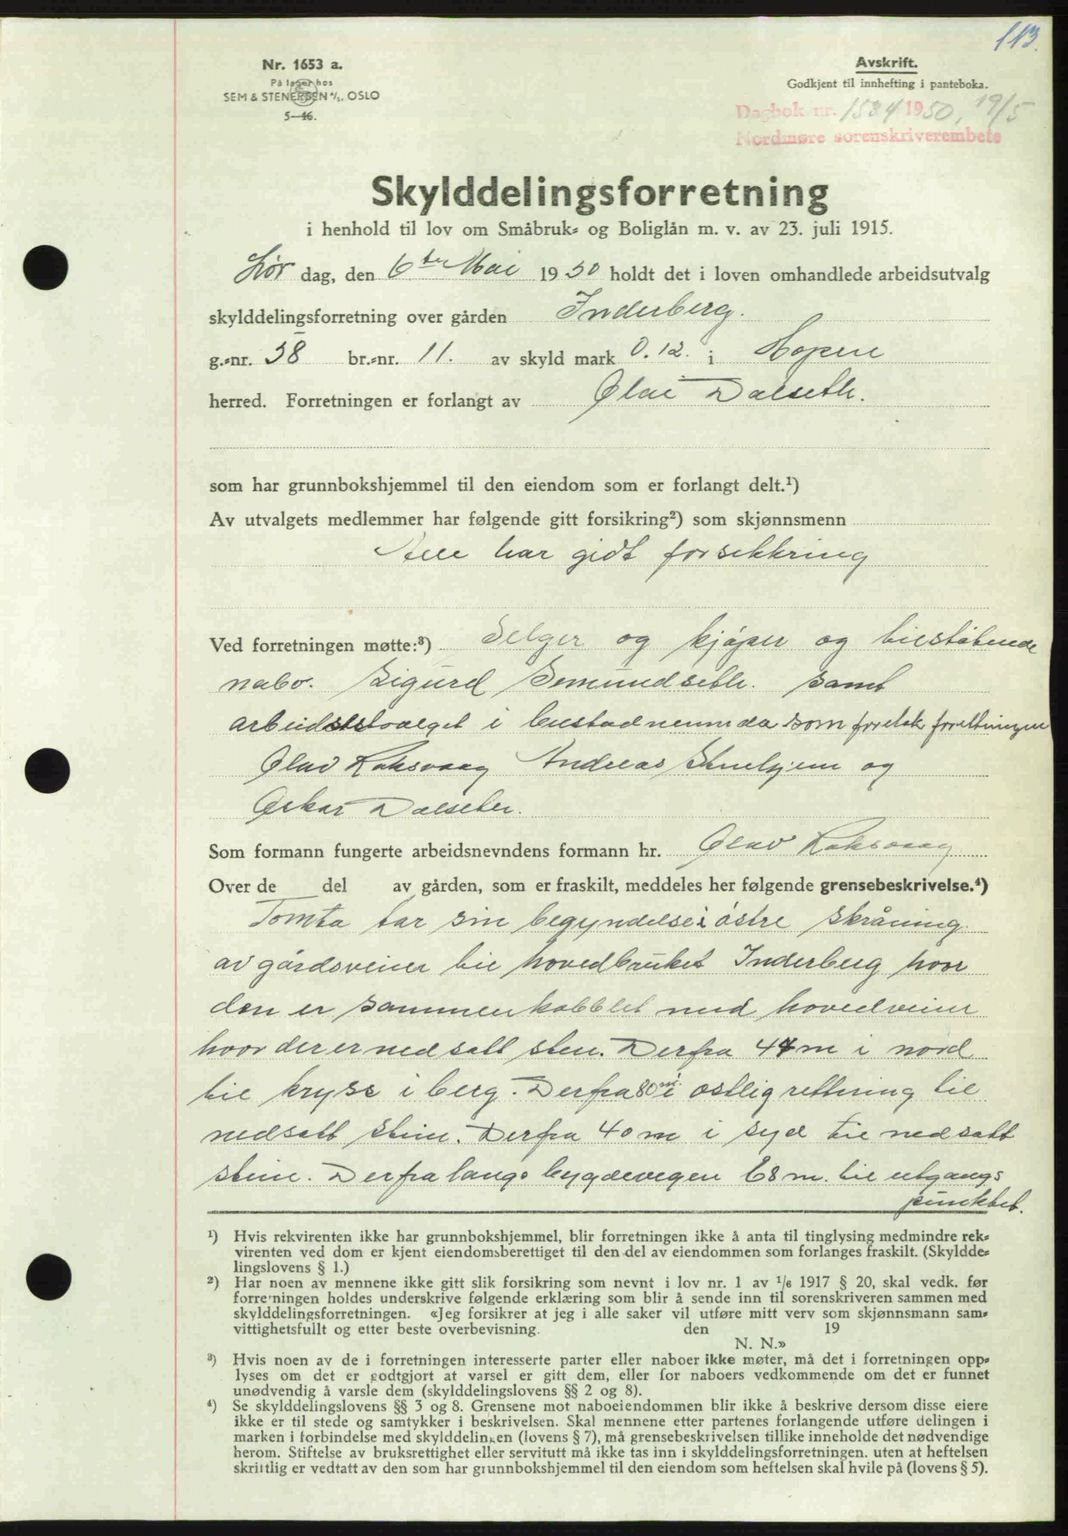 113.
Nr. 1653 a.
På lager hos
SEM & STENERSEN A/S. OSLO
5-46.
Avskrift.
Godkjent til innhefting i panteboka.
Dagbok nr. 1584 1950, 19/5
Nordmøre sorenskriverembete
Skylddelingsforretning
i henhold til lov om Småbruk- og Boliglån m. v. av 23. juli 1915.
Lør dag, den 6te Mai 1950 holdt det i loven omhandlede arbeidsutvalg
skylddelingsforretning over gården Inderberg.
g.-nr. 38 br.-nr. 11. av skyld mark 0.12. i Hopen
herred. Forretningen er forlangt av Olai Dalseth.
som har grunnbokshjemmel til den eiendom som er forlangt delt.¹)
Av utvalgets medlemmer har følgende gitt forsikring²) som skjønnsmenn
Alle har gidt forsikkring
Ved forretningen møtte:³) Selger og kjøper og tilstøtende
nabo. Sigurd Semundseth. samt
arbeidstvalget i bustadnemnda som foretok forretningen
Olav Roksvaag Andreas Stenhjem og
Oskar Dalseter.
Som formann fungerte arbeidsnevndens formann hr. Olav Roksvaag
Over de del av gården, som er fraskilt, meddeles her følgende grensebeskrivelse.⁴)
Tomta tar sin begyndelse i østre skråning
av gårdsveien til hovedbruket Inderberg hvor
den er sammenkobblet med hovedveien
hvor der er nedsatt sten. Derfra 44 m i nord
til kryss i berg. Derfra 80 m i østlig rettning til
nedsatt stein. Derfra 40 m i syd til nedsatt
stein. Derfra langs bygdevegen 68 m. til utgangs
punktet.
¹) Hvis rekvirenten ikke har grunnbokshjemmel, blir forretningen ikke å anta til tinglysing medmindre rek-
virenten ved dom er kjent eiendomsberettiget til den del av eiendommen som forlanges fraskilt. (Skyldde-
lingslovens § 1.)
²) Har noen av mennene ikke gitt slik forsikring som nevnt i lov nr. 1 av 1/6 1917 § 20, skal vedk. før
forretningen holdes underskrive følgende erklæring som blir å sende inn til sorenskriveren sammen med
skylddelingsforretningen. «Jeg forsikrer at jeg i alle saker vil utføre mitt verv som skjønnsmann sam-
vittighetsfullt og etter beste overbevisning. den 19
N. N.»
³) Hvis noen av de i forretningen interesserte parter eller naboer ikke møter, må det i forretningen opp-
lyses om det er godtgjort at varsel er gitt dem, eller for naboers vedkommende om det er funnet
unødvendig å varsle dem (skylddelingslovens §§ 2 og 8).
⁴) Se skylddelingslovens §§ 3 og 8. Grensene mot naboeiendommen blir ikke å beskrive dersom disse eiere
ikke er til stede og samtykker i beskrivelsen. Skal mennene etter partenes forlangende utføre delingen i
marken i forbindelse med skylddelingen (lovens § 7), må grensebeskrivelsen tillike inneholde det nødvendige
herom. Stiftelse av bruksrettighet eller servitutt må ikke tas inn i skylddelingsforretningen. uten at heftelsen
skriftlig er vedtatt av den som har grunnbokshjemmel til den eiendom som heftelsen skal hvile på (lovens § 5).